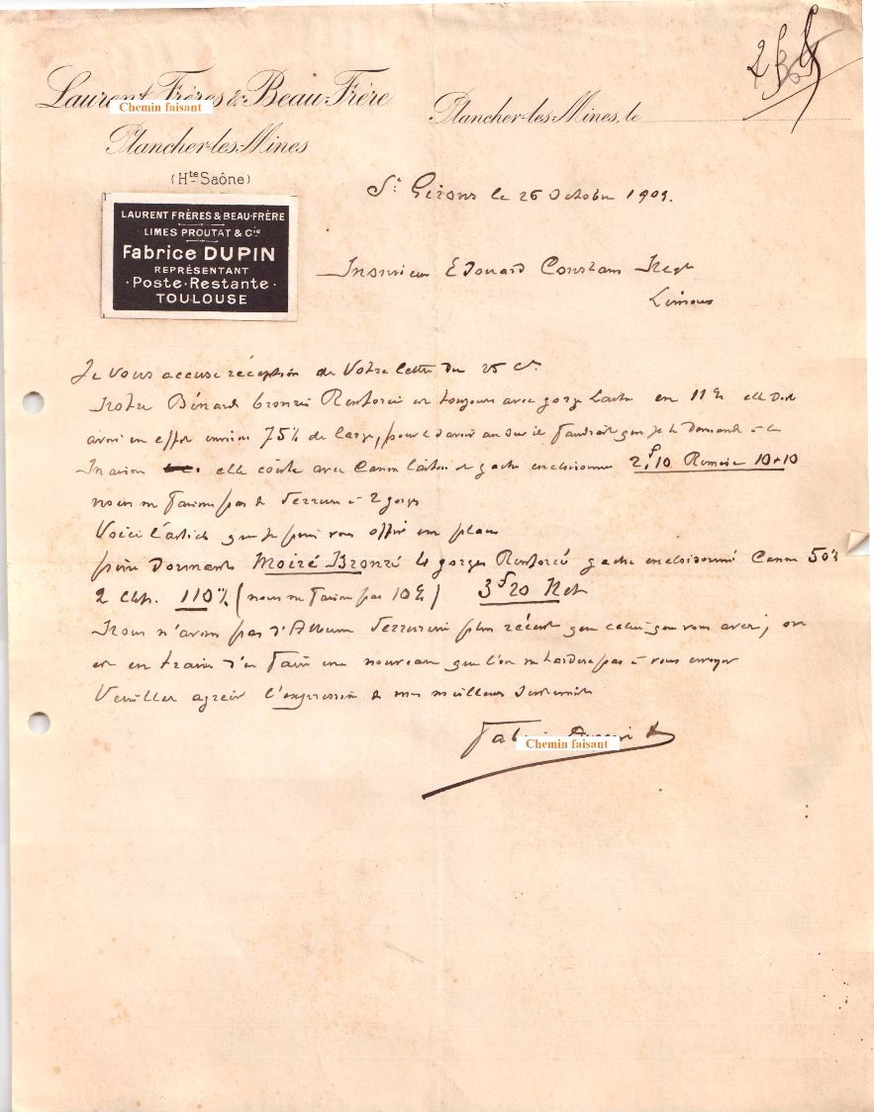 2
Laurent Frères & Beau-Frère
Chemin faisant
Plancher-les-Mines
(Hte Saône)
Plancher-les-Mines, le
St Girons le 26 Octobre 1909.
LAURENT FRÈRES & BEAU-FRÈRE
LIMES PROUTAT & Cie
Fabrice DUPIN
REPRÉSENTANT
·Poste·Restante·
TOULOUSE
Monsieur Edouard Constans Negt
Limoux
Je vous accuse réception de votre lettre du 25 ct.
Notre Bénarde bronzé Renforcé est toujours avec gorge laiton en 11 elle doit
avoir en effet environ 75% de large, pour le savoir au sur il faudrait que je le demande à la
Maison elle coûte avec canon laiton et gache encloisonnée 2f,10 Remise 10+10
nous ne faisons pas de serrure à 2 gorges
Voici l'article que je puis vous offrir en place
pène Dormante Moiré Bronzé 4 gorges Renforcé gache encloisonné Canon 50%
2 clefs. 110% (nous ne faisons pas 10) 3f20 Net
Nous n'avons pas d'Album serrurerie plus récent que celui que vous avez, on
est en train d'en faire une nouveau que l'on ne tardera pas à vous envoyer
Veuillez agréer l'expression de mes meilleurs sentiments
Chemin faisant